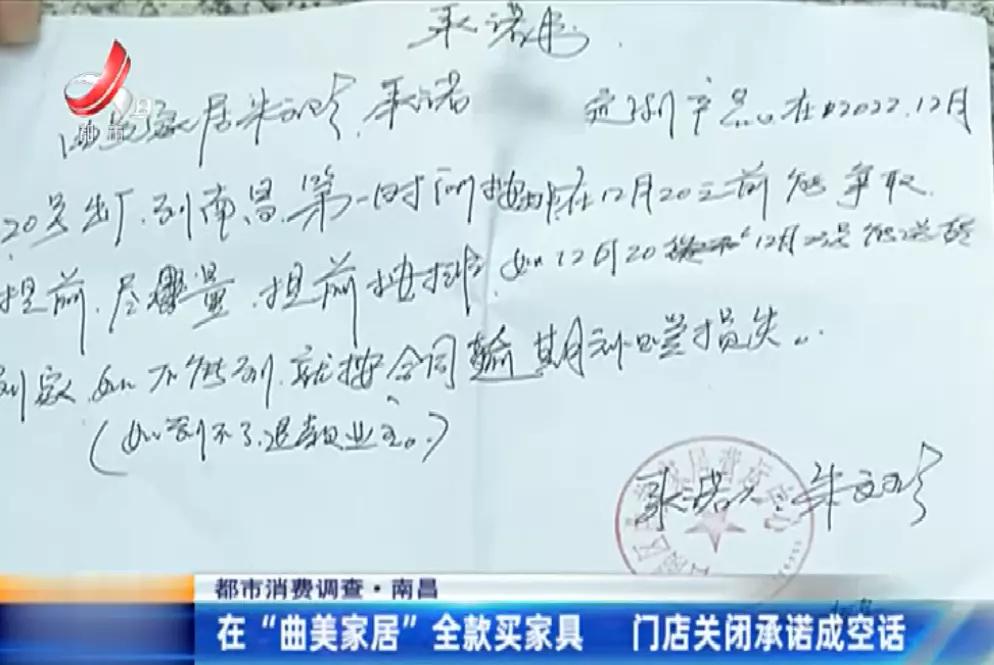 承诺书.
都市
曲美家居朱文珍.承诺 定制产品.在2022.12月
20号出厂.到南昌.第一时间按排在12月20之前能争取.
提前.尽量.提前按排.如12月20 12月 号能送
到家.如不能到.就按合同 期 损失..
(如到不了.退 业主。)
承诺人:朱文珍
都市消费调查·南昌
在“曲美家居”全款买家具 门店关闭承诺成空话